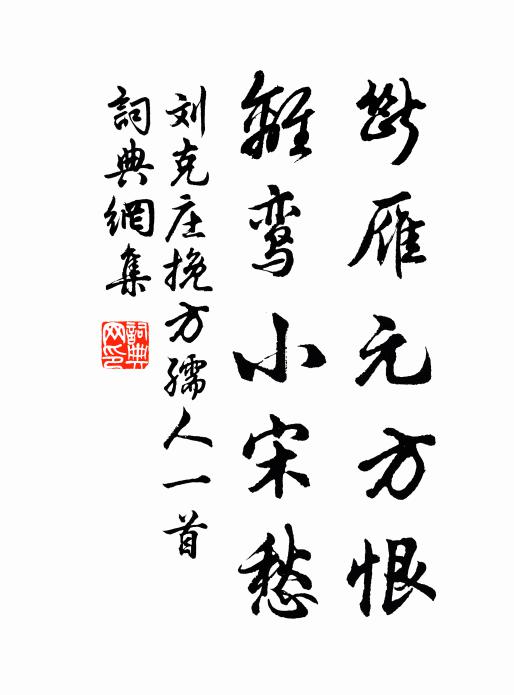 斷雁元方恨
離鸾小宋愁
刘克庄挽方孺人一首
詞典網集
詞典網印